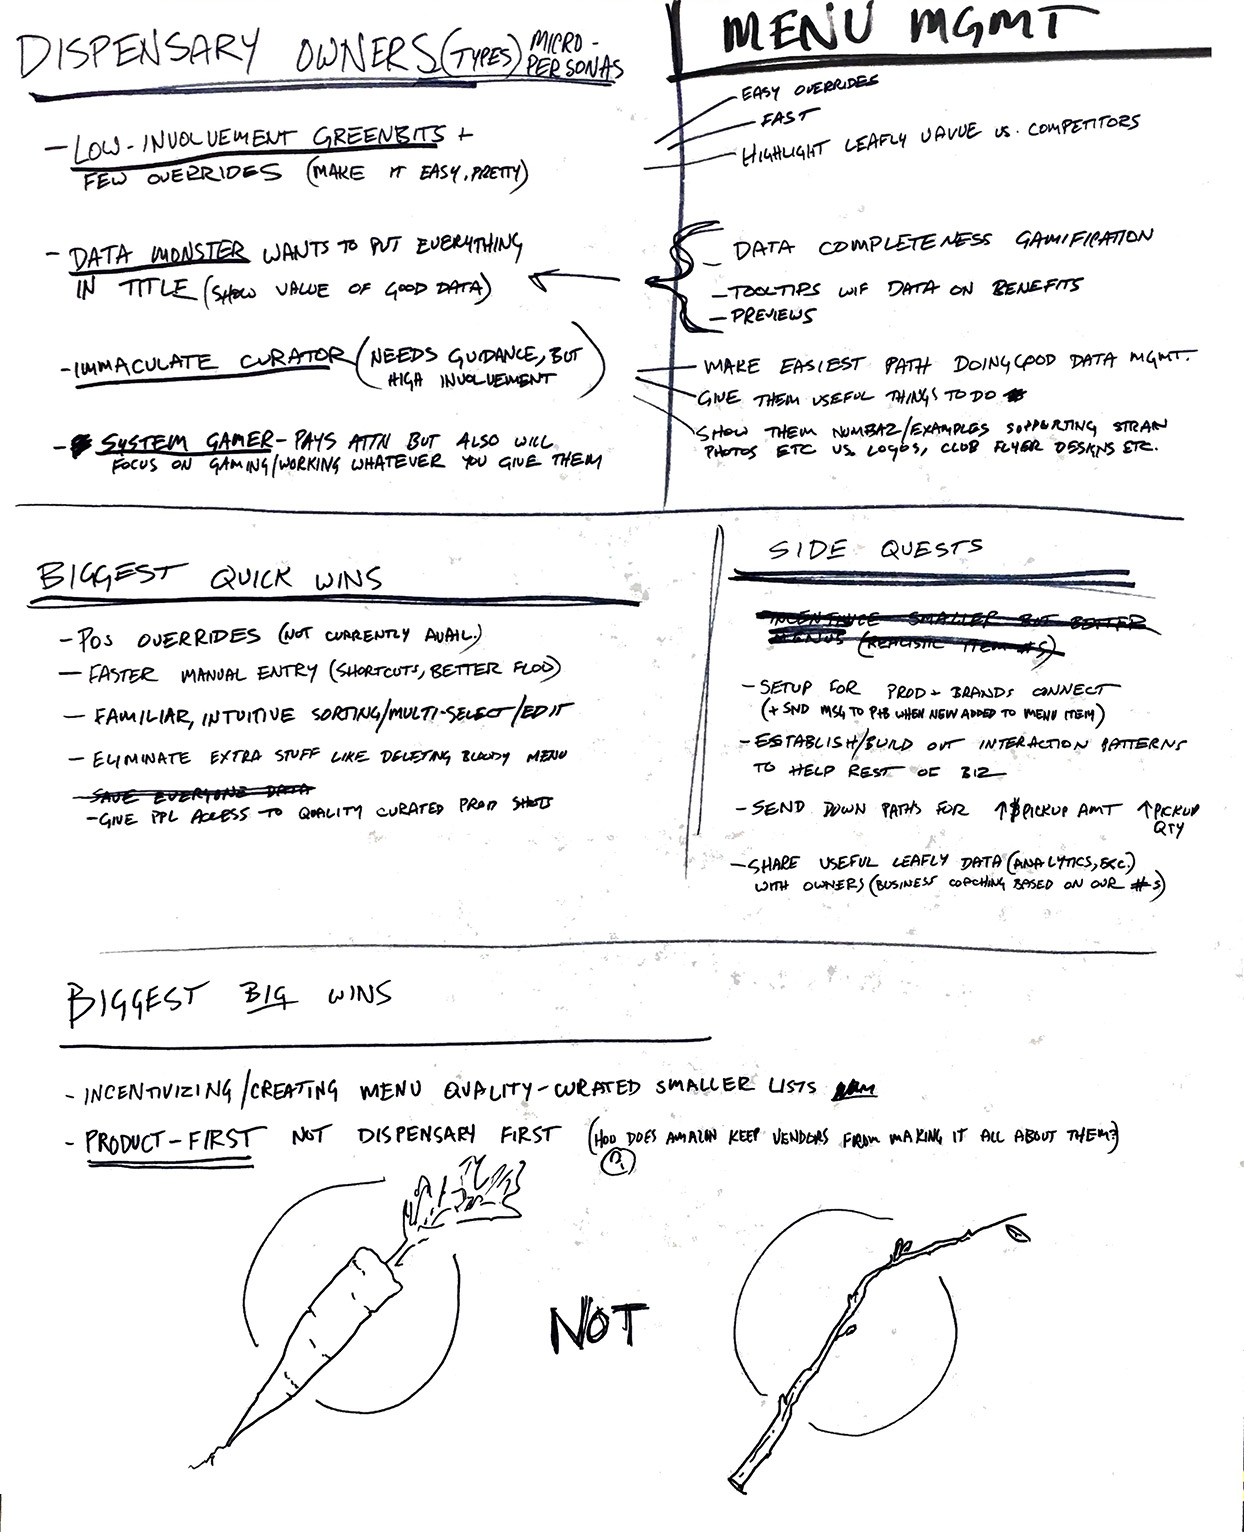 DISPENSARY OWNERS (TYPES) MICRO-
PERSONAS
- LOW-INVOLVEMENT GREENBITS +
FEW OVERRIDES (MAKE IT EASY, PRETTY)
- DATA MONSTER WANTS TO PUT EVERYTHING
IN TITLE (SHOW VALUE OF GOOD DATA)
- IMMACULATE CURATOR (NEEDS GUIDANCE, BUT
HIGH INVOLVEMENT)
- SYSTEM GAMER - PAYS ATTN BUT ALSO WILL
FOCUS ON GAMING/WORKING WHATEVER YOU GIVE THEM
MENU MGMT
EASY OVERRIDES
FAST
HIGHLIGHT LEAFLY VALUE VS. COMPETITORS
DATA COMPLETENESS GAMIFICATION
- TOOLTIPS W/ DATA ON BENEFITS
- PREVIEWS
- MAKE EASIEST PATH DOING GOOD DATA MGMT.
GIVE THEM USEFUL THINGS TO DO
SHOW THEM NUMBAZ/EXAMPLES SUPPORTING STRAIN
PHOTOS ETC VS. LOGOS, CLUB FLYER DESIGNS ETC.
BIGGEST QUICK WINS
- POS OVERRIDES (NOT CURRENTLY AVAIL.)
- FASTER MANUAL ENTRY (SHORTCUTS, BETTER FLOW)
- FAMILIAR, INTUITIVE SORTING/MULTI-SELECT/EDIT
- ELIMINATE EXTRA STUFF LIKE DELETING BLOODY MENU
- SAVE EVERYONE DATA
- GIVE PPL ACCESS TO QUALITY CURATED PROD SHOTS
SIDE QUESTS
INCENTIVICE SMALLER BUT BETTER
MENUS (REALISTIC ITEM #S)
- SETUP FOR PROD + BRANDS CONNECT
(+ SND MSG TO P+B WHEN NEW ADDED TO MENU ITEM)
- ESTABLISH/BUILD OUT INTERACTION PATTERNS
TO HELP REST OF BIZ
- SEND DOWN PATHS FOR ↑$PICKUP AMT ↑PICKUP
QTY
- SHARE USEFUL LEAFLY DATA (ANALYTICS, ETC.)
WITH OWNERS (BUSINESS COACHING BASED ON OUR #S)
BIGGEST BIG WINS
- INCENTIVIZING/CREATING MENU QUALITY - CURATED SMALLER LISTS
- PRODUCT-FIRST NOT DISPENSARY FIRST (HOW DOES AMAZON KEEP VENDORS FROM MAKING IT ALL ABOUT THEM?)
NOT